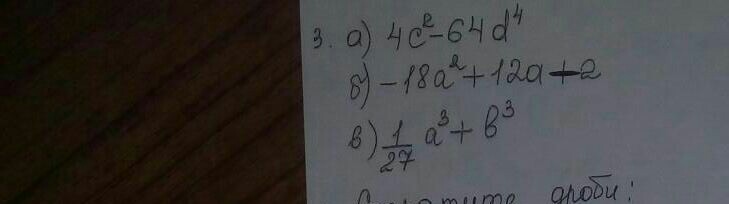 3. а) 4c²-64d⁴
б) -18a²+12a-2
в) 1/27 a³+b³
дроби: